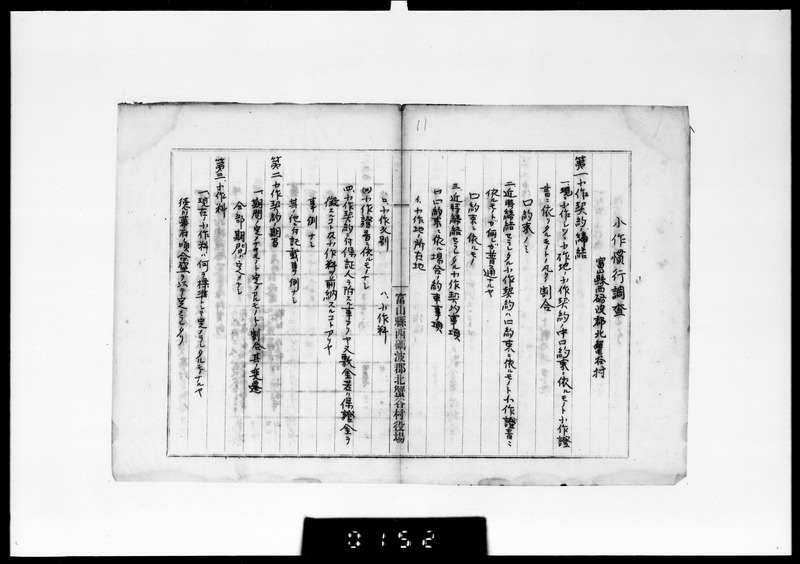 11
小作慣行調査
富山縣西砺波郡北蟹谷村
第一 小作契約締結
一、現ニ小作シタル小作地ノ小作契約ノ中口約束ニ依ルモノト小作證
書ニ依リタルモノトノ凡ソノ割合
口約束ノミ
二、近時締結セラレタル小作契約ハ口約束ニ依ルモノト小作證書ニ
依ルモノト何レガ普通ナルヤ
口約束ニ依ルモノ
三、近時締結セラレタル小作契約ノ事項
(イ)口約束ニ依ル場合ノ約束事項
イ、小作地ノ所在地
富山縣西礪波郡北蟹谷村役場
ロ、小作反別
ハ、小作料
(ロ)小作證書ニ依ルモノナシ
四、小作契約ニ付保証人ヲ附スル事アリヤ又敷金若ハ保證金ヲ
徴スルコト又ハ小作料ヲ前納スルコトアリヤ
事例ナシ
其他ニ付記載スル例ナシ
第二 小作契約期間
一、期間ノ定メアルモノト定メナキモノトノ割合其ノ変遷
全部期間ノ定メナシ
第三 小作料
一、現在ノ小作料ハ何ヲ標準トシテ定メラレタルモノナルヤ
従令藩府ノ頃合盛ヲ以テ定メラレタリ